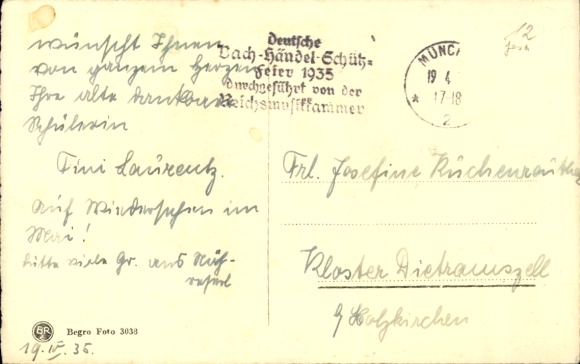 wünscht Ihnen
von ganzem Herzen
Ihre alte dankbare
Schülerin
Tini Laurentz.
Auf Wiedersehen im
Mai!
bitte viele Gr. ans
Begro Foto 3038
19. IV. 35.
Deutsche
Bach-Händel-Schütz-
Feier 1935
durchgeführt von der
Reichsmusikkammer
MÜNC
19 4
17-18
2
12
Frl. Josefine
Kloster Dietramszell
b/ Holzkirchen